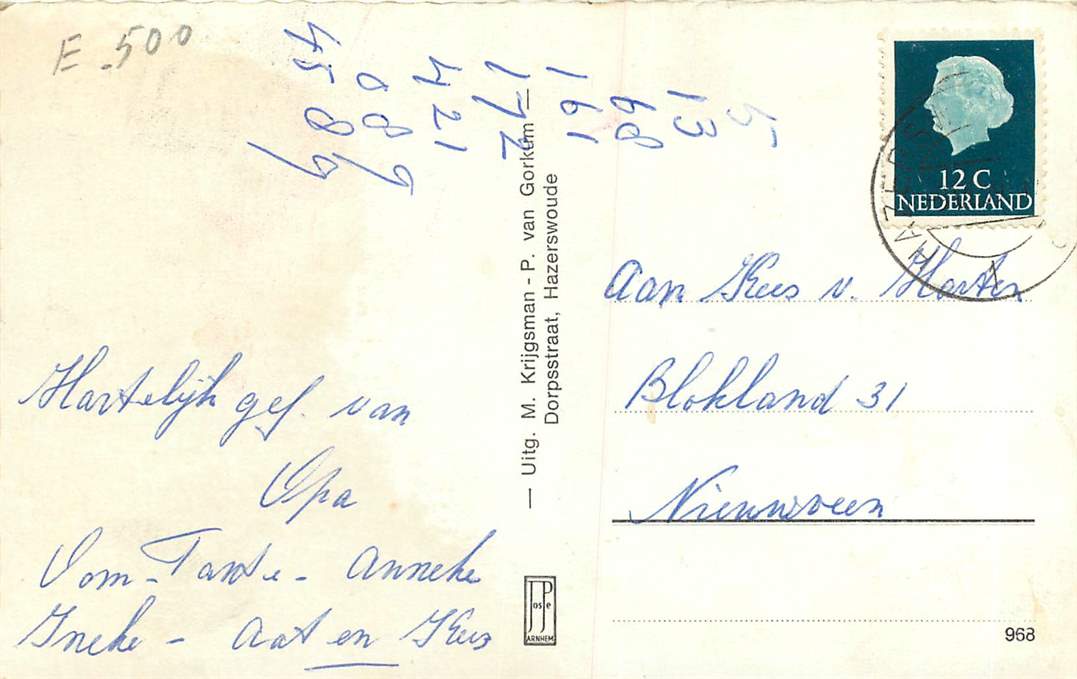 E .500
5
13
68
161
172
421
089
4589
12 C
NEDERLAND
HAZERSW
Aan Kees v. Harten
Blokland 31
Nieuwveen
Hartelijk gef. van
Opa
Oom - Tante - Anneke
Ineke - Aat en Kees
— Uitg. M. Krijgsman - P. van Gorkum —
Dorpsstraat, Hazerswoude
JosPe
ARNHEM
968